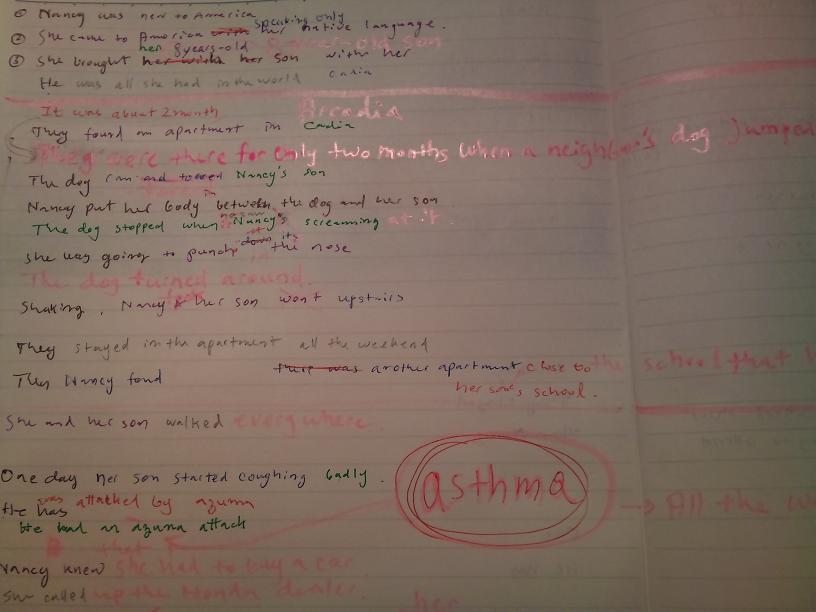 ① Nancy was new to America
speaking only
② She came to America with her native language.
her 8 years-old 8-year-old son
③ She brought her with her son with her
He was all she had in the world Cadia
It was about 2 month Arcadia
They found an apartment in Cadia
They were there for only two months when a neighbor's dog jumped
The dog ran and towed Nancy's son
in
Nancy put her body between the dog and her son
The dog stopped when Nancy's screaming at it.
down its
she was going to punch the nose
The dog turned around.
Shaking, Nancy & her son went upstairs
They stayed in the apartment all the weekend
Then Nancy found there was another apartment close to the school that
her son's school.
She and her son walked everywhere.
One day her son started coughing badly.
asthma
was
He has attacked by azuma
→ All the
He had an azuma attack
that
Nancy knew she had to buy a car
She called up the Honda dealer.
her